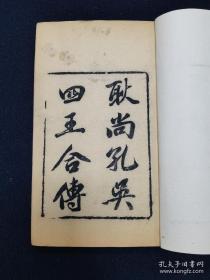 耿尚孔吳
四王合傳
孔夫子旧书网